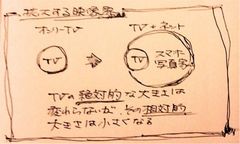 拡大する映像界
オンリーTV
TV + ネット
TV
TV
スマホ
写真家
TVの絶対的な大きさは
変わらないが、その相対的
大きさは小さくなる